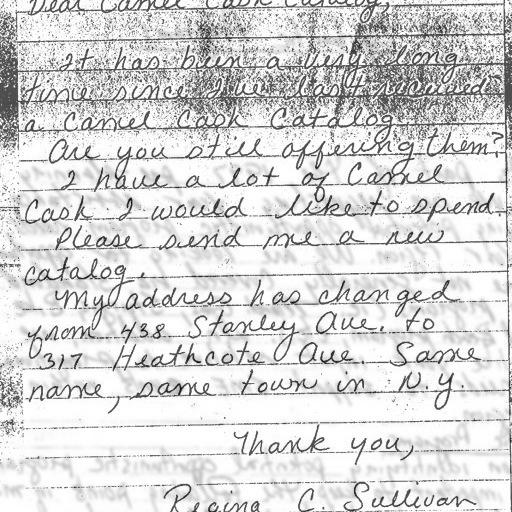 Dear Camel Cash Catalog,
It has been a very long
time since I've last received
a Camel Cash Catalog.
Are you still offering them?
I have a lot of Camel
Cash I would like to spend.
Please send me a new
catalog.
My address has changed
from 438 Stanley Ave. to
317 Heathcote Ave. Same
name, same town in N.Y.
Thank you,
Regina C. Sullivan